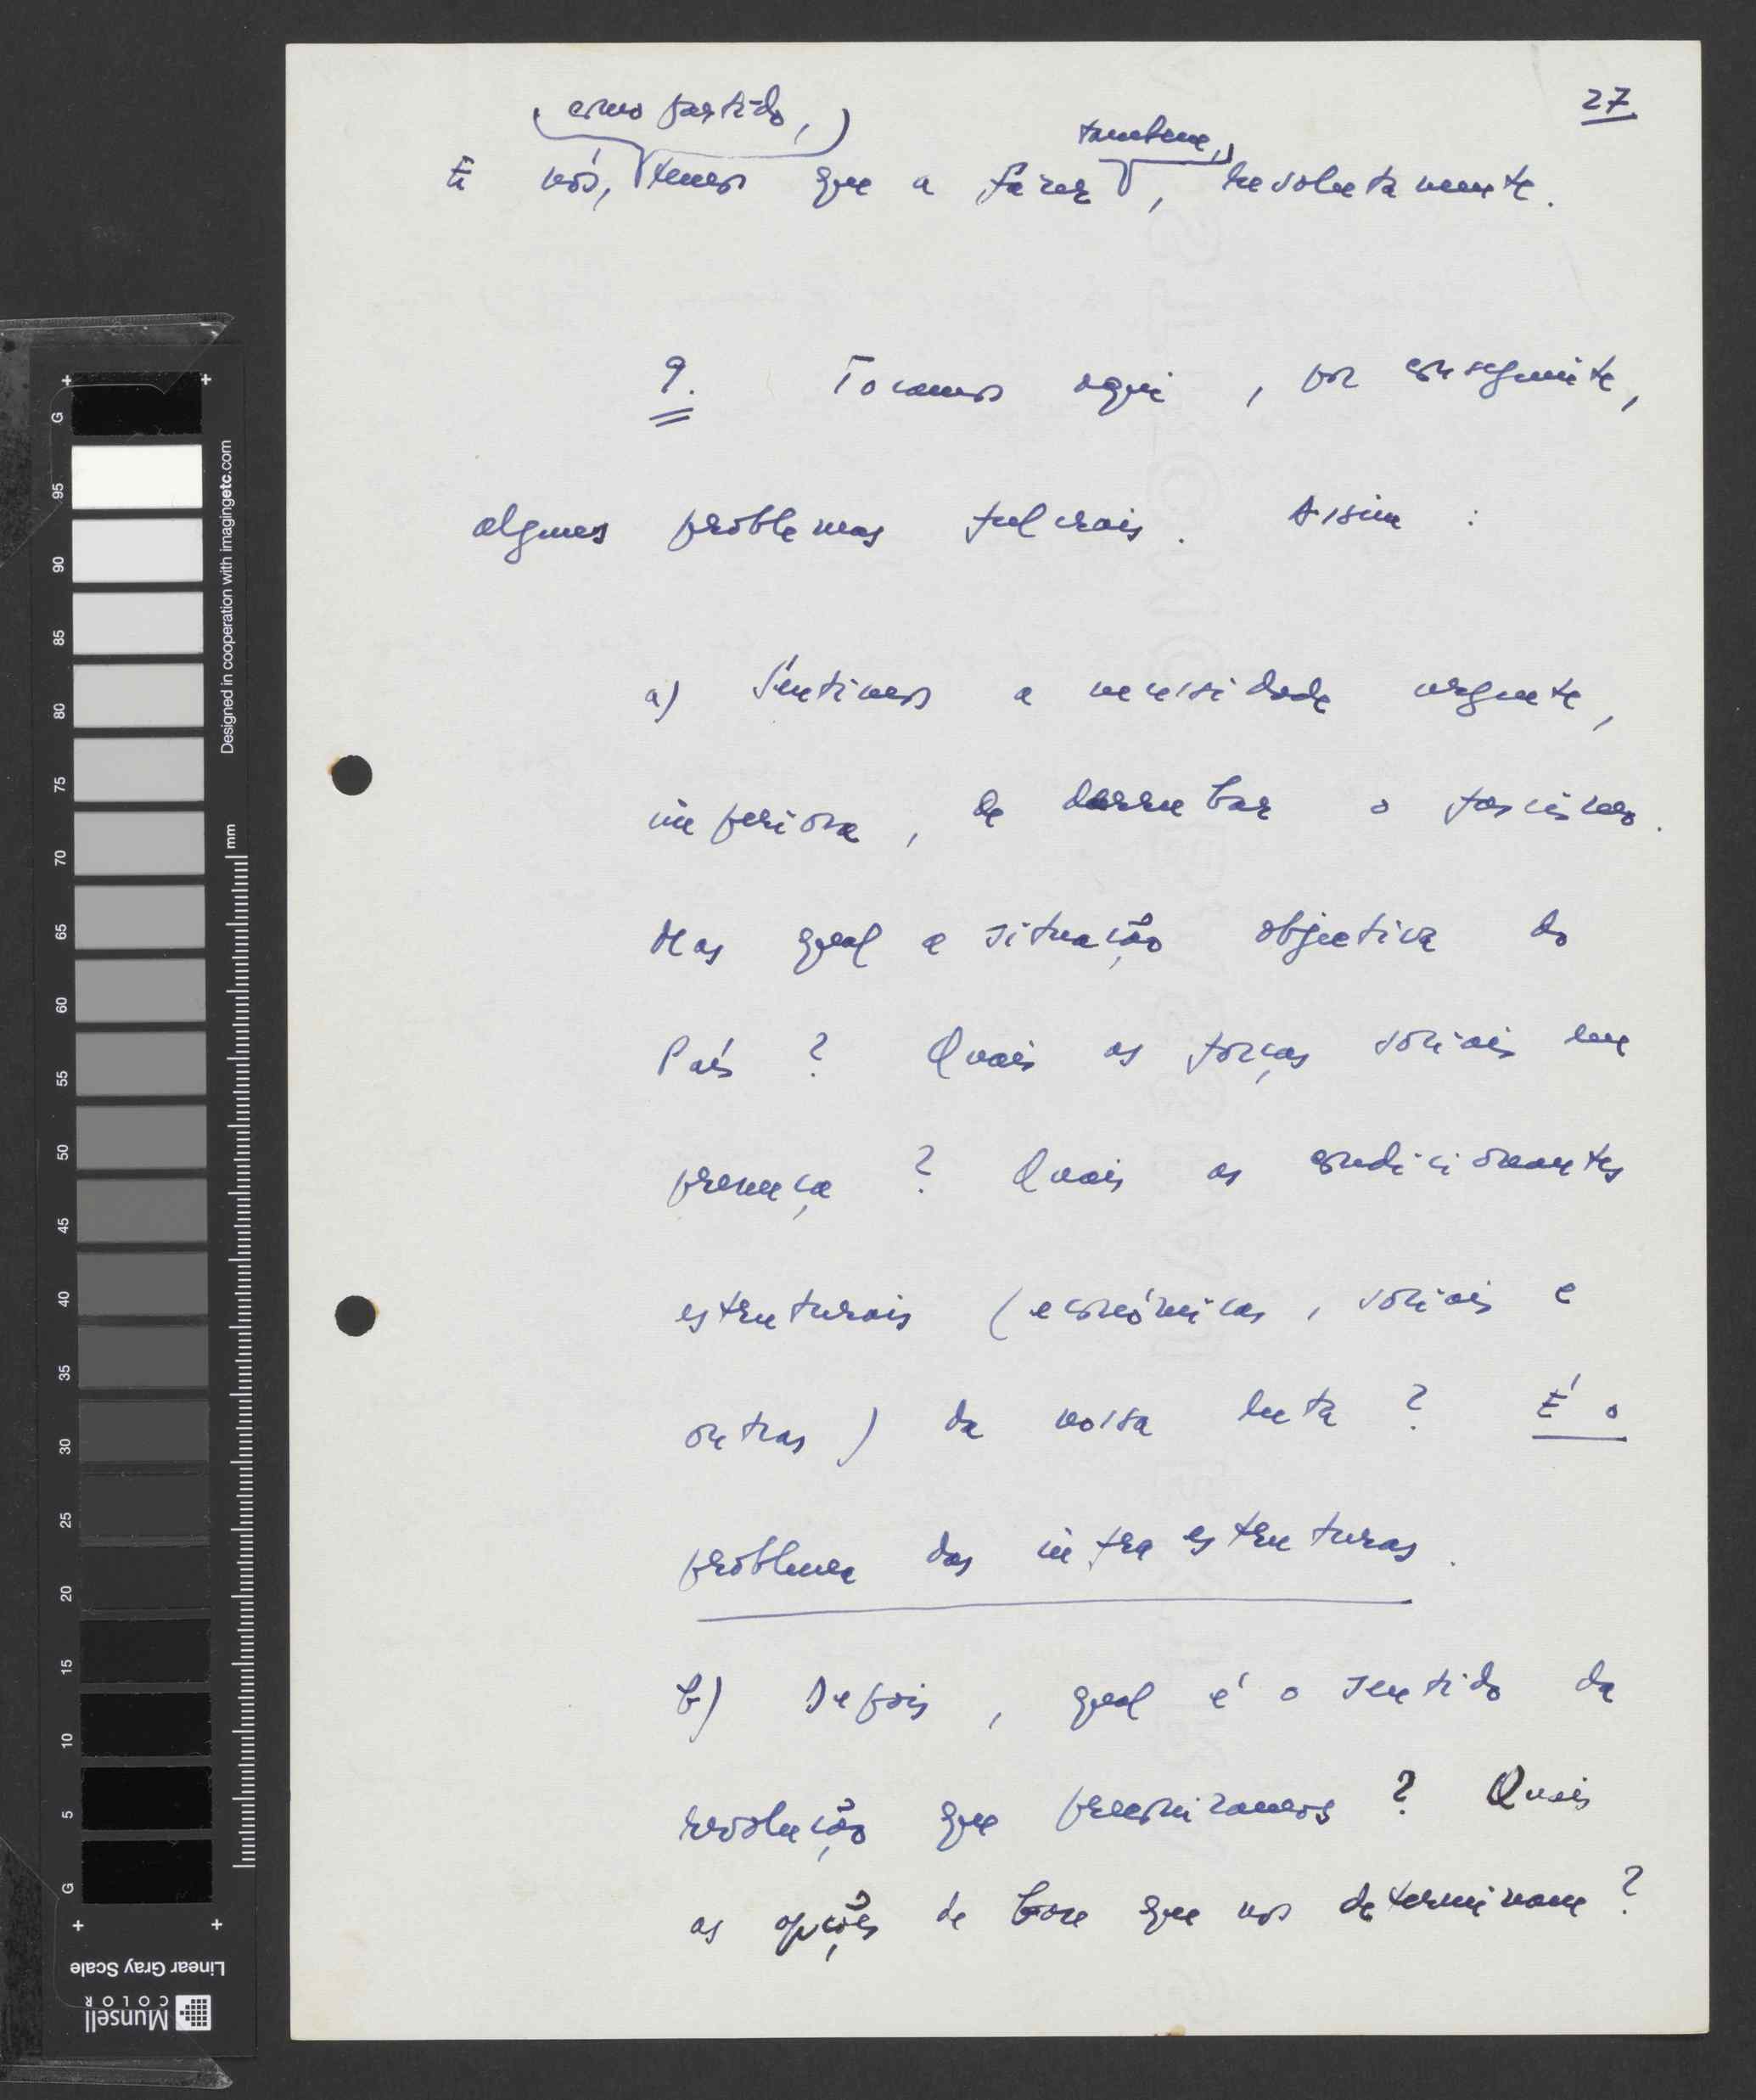 27.
como partido,
também,
E nós, temos que a fazer, resolutamente.
9. Tocamos aqui, por conseguinte,
alguns problemas fulcrais. Assim:
a) Sentimos a necessidade urgente,
imperiosa, de derrubar o fascismo.
Mas qual a situação objectiva do
País? Quais as forças sociais em
presença? Quais as condicionantes
estruturais (económicas, sociais e
outras) da nossa luta? É o
problema das infraestruturas.
b) Depois, qual é o sentido da
revolução que preconizamos? Quais
as opções de base que nos determinam?
Designed in cooperation with imagingetc.com
mm
G
95
90
85
80
75
70
65
60
55
50
45
40
35
30
25
20
15
10
5
G
Linear Gray Scale
Munsell
COLOR